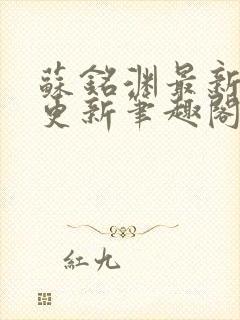 蘇銘淵最新
更新筆趣閣
紅九